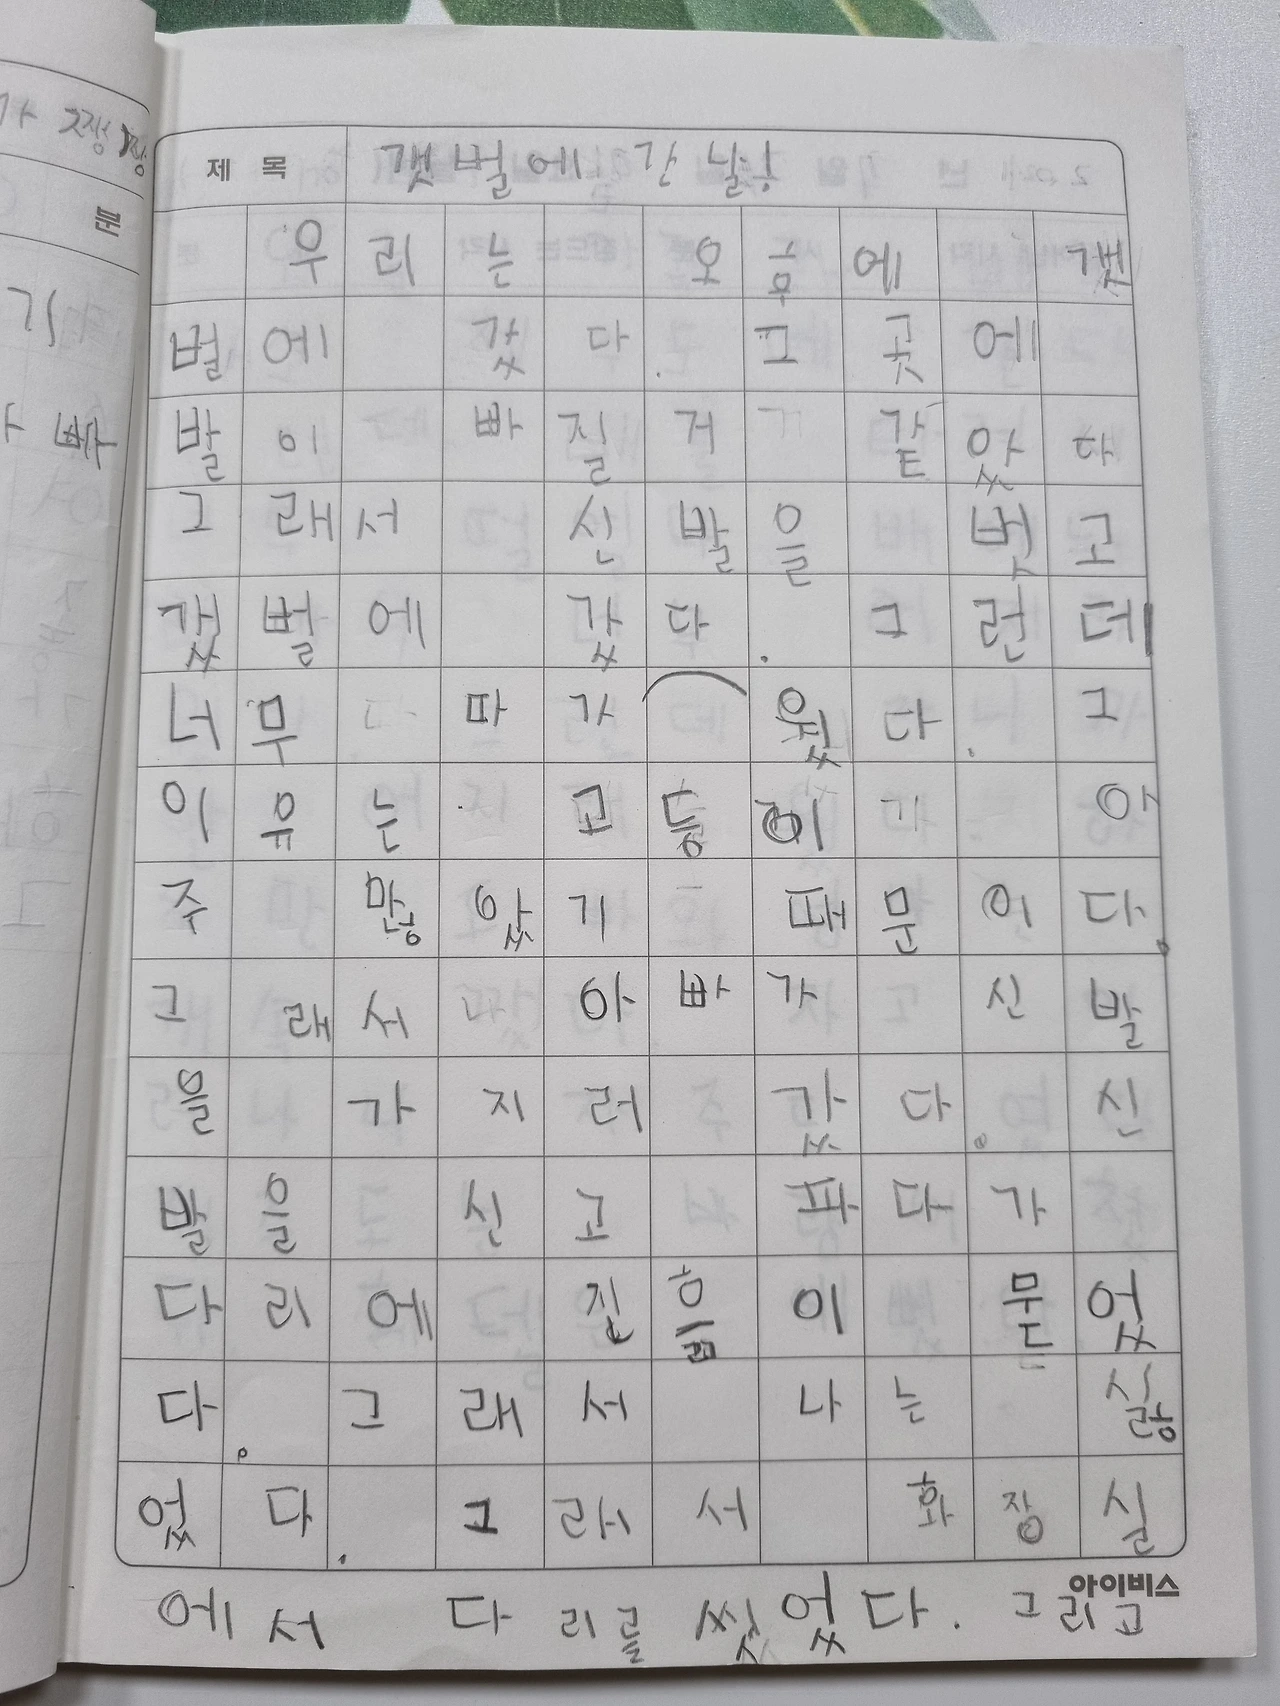 가 쨍쨍
분
기
빠
제 목 갯벌에 간 날
우리는 갯
벌에 갔다. 그곳에
발이 빠질거 같았다
그래서 신발을 벗고
갰벌에 갔다. 그런데
너무 따가웠다. 그
이유는 고둥이 아
주 많았기 때문이다.
그래서 아빠가 신발
을 가지러 갔다. 신
발을 신고 파다가
다리에 진흙이 묻었
다. 그래서 나는 싫
었다. 그래서 화장실
아이비스
에서 다리를 씻었다. 그리고